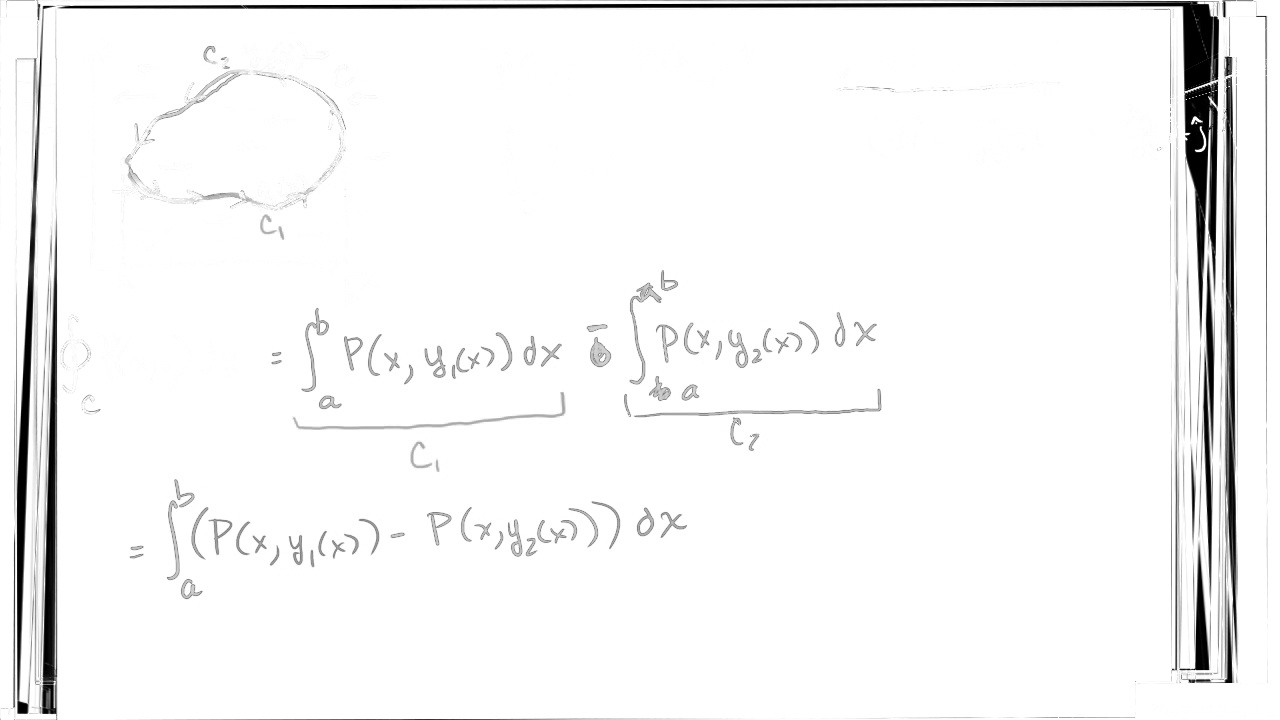 C₂
C₁
ĵ
= ∫ₐᵇ P(x, y₁(x)) dx - ∫ₐᵇ P(x, y₂(x)) dx
∮
c
C₁ C₂
= ∫ₐᵇ (P(x, y₁(x)) - P(x, y₂(x))) dx